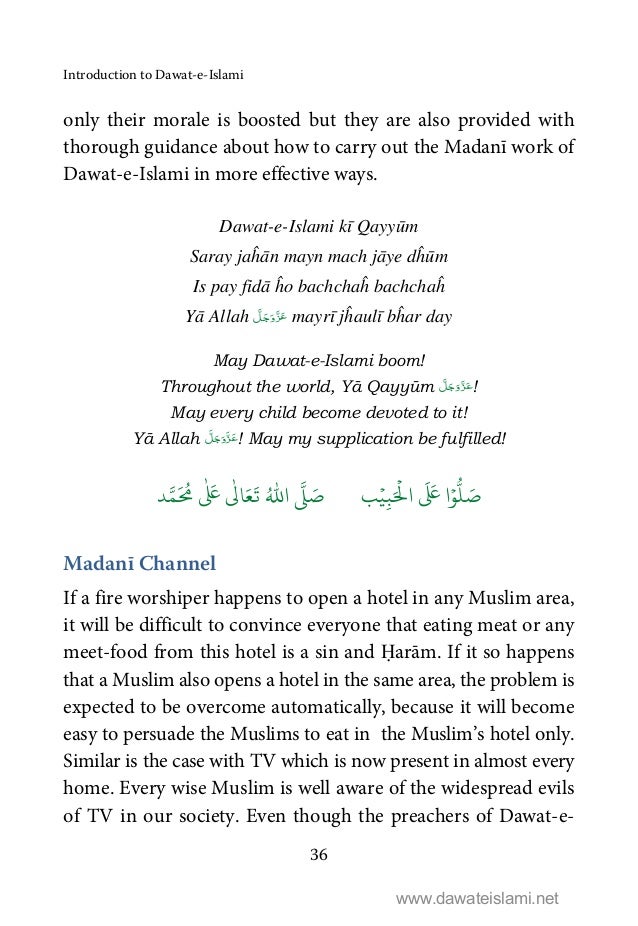 Introduction to Dawat-e-Islami
only their morale is boosted but they are also provided with
thorough guidance about how to carry out the Madanī work of
Dawat-e-Islami in more effective ways.
Dawat-e-Islami kī Qayyūm
Saray jaĥān mayn mach jāye dĥūm
Is pay fidā ĥo bachchaĥ bachchaĥ
Yā Allah عَزَّوَجَلَّ mayrī jĥaulī bĥar day
May Dawat-e-Islami boom!
Throughout the world, Yā Qayyūm عَزَّوَجَلَّ!
May every child become devoted to it!
Yā Allah عَزَّوَجَلَّ! May my supplication be fulfilled!
صَلُّوۡا عَلَى الۡحَبِيۡب صَلَّى اللهُ تَعَالٰى عَلٰى مُحَمَّد
Madanī Channel
If a fire worshiper happens to open a hotel in any Muslim area,
it will be difficult to convince everyone that eating meat or any
meet-food from this hotel is a sin and Ḥarām. If it so happens
that a Muslim also opens a hotel in the same area, the problem is
expected to be overcome automatically, because it will become
easy to persuade the Muslims to eat in the Muslim’s hotel only.
Similar is the case with TV which is now present in almost every
home. Every wise Muslim is well aware of the widespread evils
of TV in our society. Even though the preachers of Dawat-e-
36
www.dawateislami.net